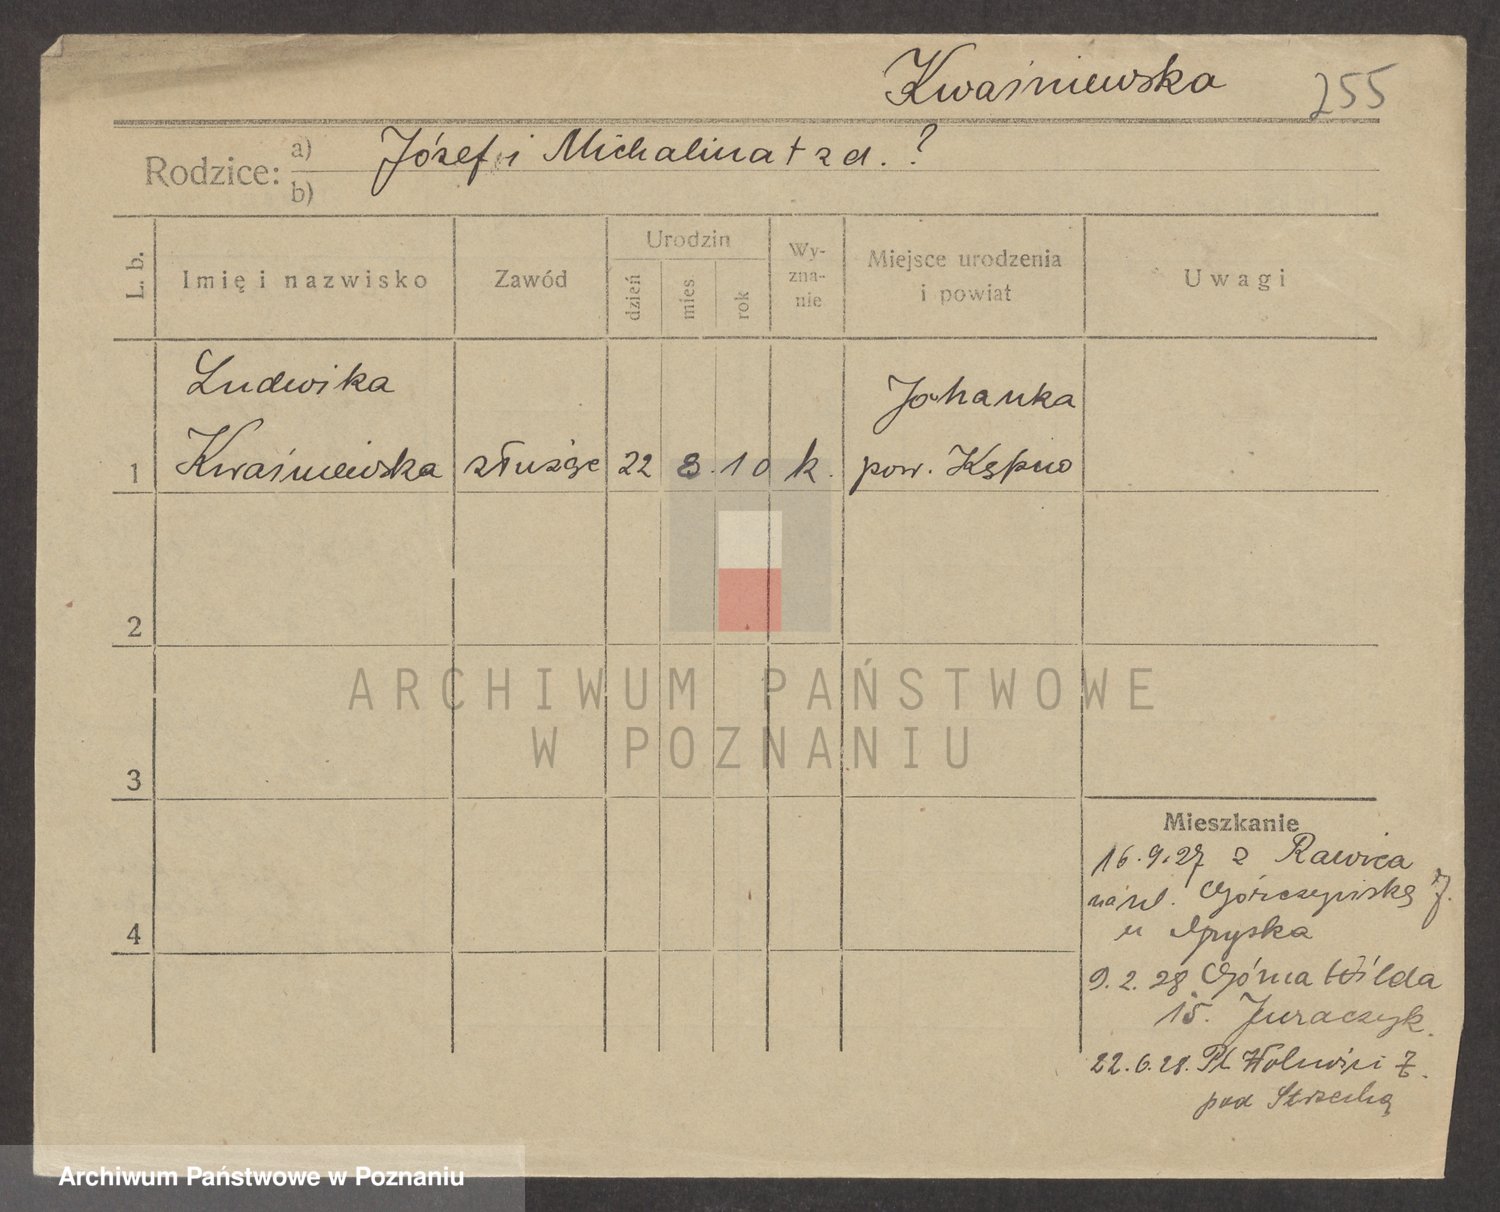 Kwaśniewska 255
Rodzice: a) Józef i Michalina + zd. ?
b)
L. b. Imię i nazwisko Zawód Urodzin dzień mies rok Wy-zna-nie Miejsce urodzenia i powiat Uwagi
Ludwika Johanka
1 Kwaśniewska służąc 22 8. 10 k. pow. Kępno
2
ARCHIWUM PAŃSTWOWE
W POZNANIU
3
Mieszkanie
16.9.27 z Rawica
na ul. Górczyńską 7.
u
4
9.2.28 Górna Wilda
15. Juraczyk.
22.6.28. Pl. Wolności 7.
pod Strzechą
Archiwum Państwowe w Poznaniu